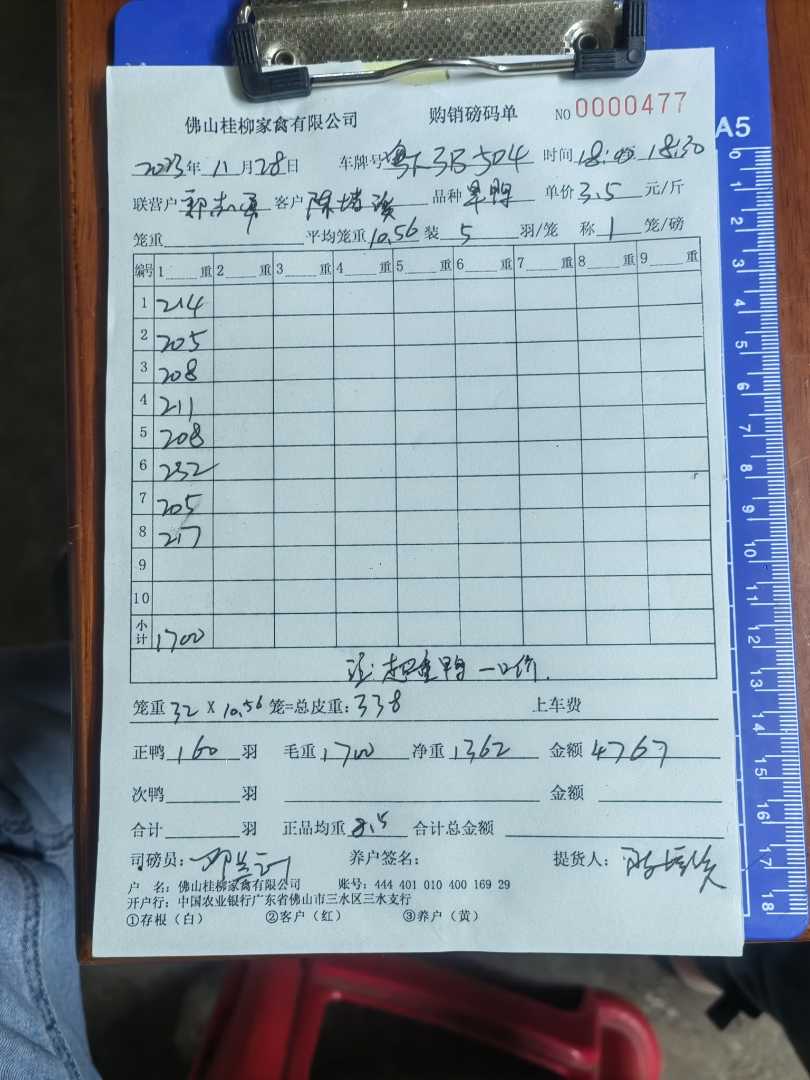 佛山桂柳家禽有限公司 购销磅码单 NO 0000477
2023年 11月 28日 车牌号 粤 3B504 时间 18:00 18:30
联营户 郭志军 客户 陈 品种 旱鸭 单价 3.5 元/斤
笼重 平均笼重 10.56 装 5 羽/笼 称 1 笼/磅
编号 1 重 2 重 3 重 4 重 5 重 6 重 7 重 8 重 9 重
1 214
2 205
3 208
4 211
5 208
6 232
7 205
8 217
9
10
小计 1700
注: 超重鸭 一口价.
笼重 32 X 10.56 笼=总皮重: 338 上车费
正鸭 160 羽 毛重 1700 净重 1362 金额 4767
次鸭 羽 金额
合计 羽 正品均重 8.5 合计总金额
司磅员: 养户签名: 提货人: 陈
户 名: 佛山桂柳家禽有限公司 账号: 444 401 010 400 169 29
开户行: 中国农业银行广东省佛山市三水区三水支行
①存根(白) ②客户(红) ③养户(黄)
A5
0
1
2
3
4
5
6
7
8
9
10
11
12
13
14
15
16
17
18